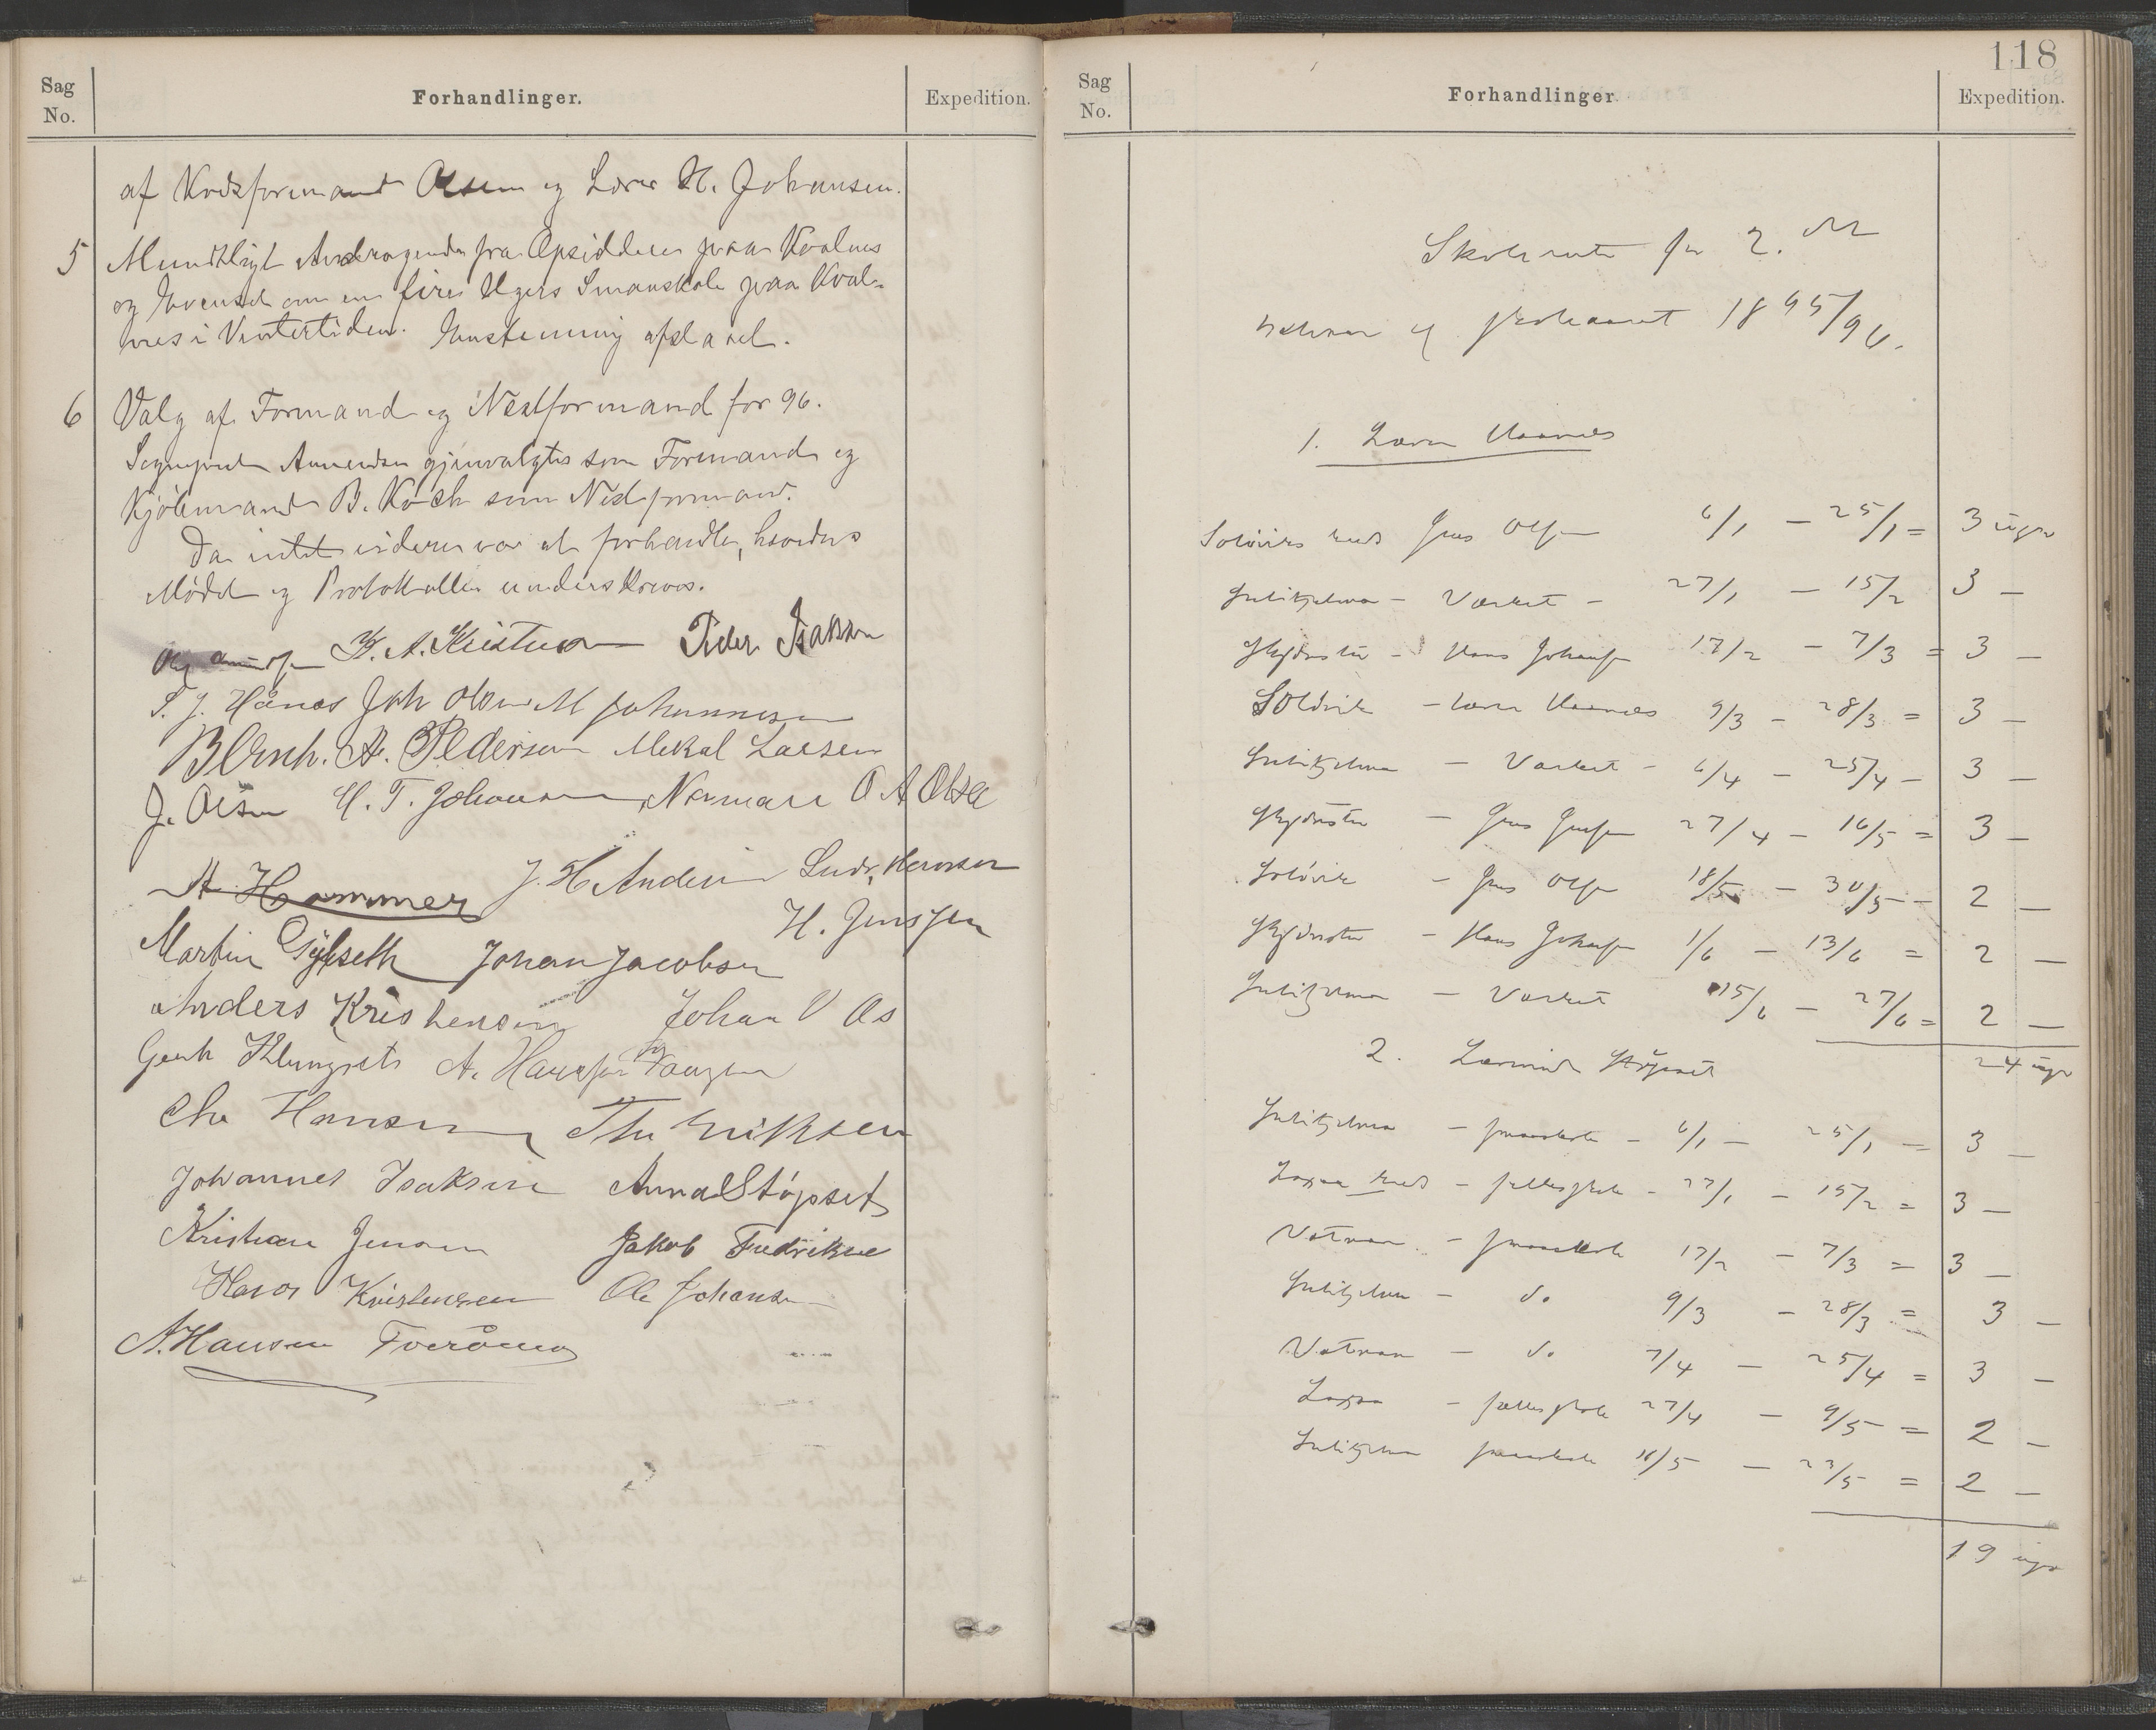 Sag No.
Forhandlinger.
Expedition.
af Kredsformand Olsen og Lærer H. Johansen.
5 Mundtligt Andragende fra Opsiddere paa Kvalnes
og om en fires Ugers Smaaskole paa Kval-
nes i Vintertiden. Enstemmig afslaaet.
6 Valg af Formand og Næstformand for 96.
Sogneprest Amundsen gjenvalgtes som Formand og
Kjøbmand B. Koch som Næstformand.
Da intet videre var at forhandle, hævedes
Mødet og Protokollen underskreves.
K. A. Kristensen Peder Isaksen
S. J. Hånæs Joh Olsen M Johannesen
Bernh. A. Pedersen Mekal Larsen
J. Olsen H. T. Johansen, Normann O A Olsen
A. Hammer J. H Andersen Ludv. Hermsen
H. Jenssen
Martin Gylseth Johan Jacobsen
Anders Kristensen Johan V Os
A. Hansen
Chr Hansen Thr Eriksen
Johannes Isaksen Anna Støpset
Kristian Jensen Jakob Fredriksen
Hans Kristensen Ole Johansen
A. Hansen Tverånes
118
Sag No.
Forhandlinger
Expedition.
Skoleruten for 2. 
af skoleaaret 1895/96.
1. Lærer Haanæs
Solövik hus Jens Olsen 6/1 – 25/1 = 3 uger
Sulitjelma – Værket – 27/1 – 15/2 3 –
– Hans Johansen 17/2 – 7/3 = 3 –
Solövik – Lærer Haanæs 9/3 – 28/3 = 3 –
Sulitjelma – Værket – 6/4 – 25/4 – 3 –
– Jens Jensen 27/4 – 16/5 = 3 –
Solövik – Jens Olsen 18/5 – 30/5 – 2 –
– Hans Johansen 1/6 – 13/6 = 2 –
Sulitjelma – Værket 15/6 – 27/6 = 2 –
24 uger
2. Lærerinde Støpset
Sulitjelma – smaaskole – 6/1 – 25/1 – 3 –
– fællesskole – 27/1 – 15/2 = 3 –
Vatnan – smaaskole 17/2 – 7/3 = 3 –
Sulitjelma – do 9/3 – 28/3 = 3 –
Vatnan – do 7/4 – 25/4 = 3 –
– fællesskole 27/4 – 9/5 = 2 –
Sulitjelma smaaskole 11/5 – 23/5 = 2 –
19 uger